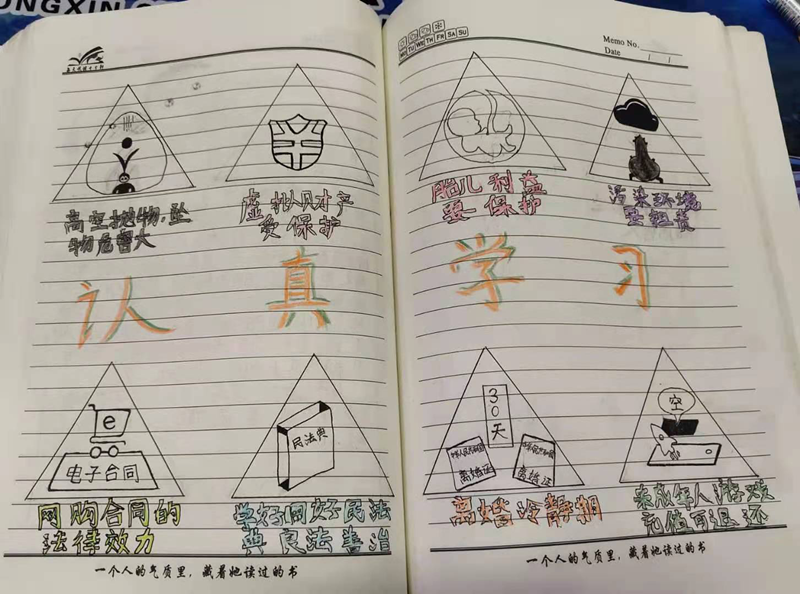 ONGXIN
MO TU WE TH FR SA SU
Memo No.
Date / /
高空抛物,坠
物危害大
虚拟财产
要保护
胎儿利益
要保护
污染环境
要担责
认 真 学 习
e
电子合同
网购合同的
法律效力
民法典
学好用好民法
典 良法善治
30天
中华人民共和国
离婚证
中华人民共和国
离婚证
离婚冷静期
空
未成年人游戏
充值可退还
一个人的气质里，藏着她读过的书
一个人的气质里，藏着她读过的书